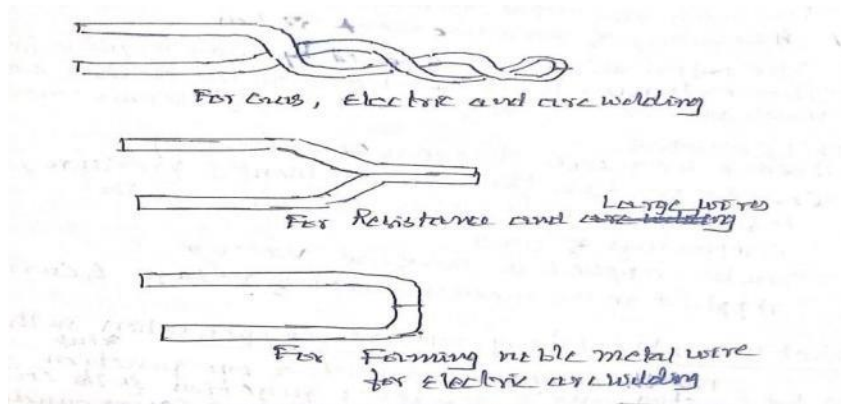 For Gas, Electric and arc welding
For Resistance and Large wires
For Forming noble metal wire
for electric arc welding